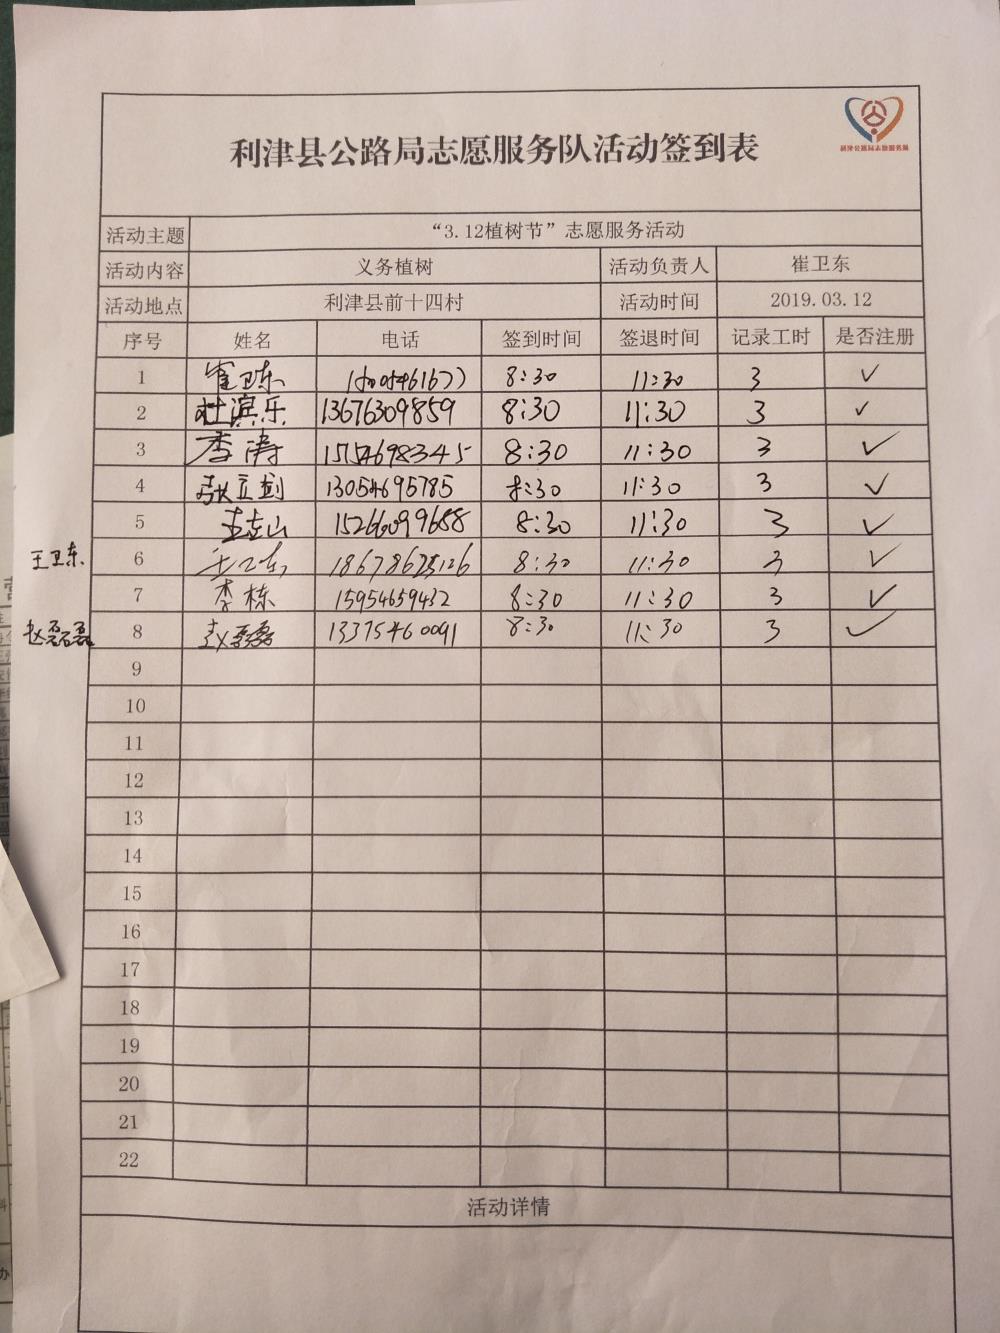 利津县公路局志愿服务队活动签到表
利津公路局志愿服务队
活动主题 “3.12植树节”志愿服务活动
活动内容 义务植树 活动负责人 崔卫东
活动地点 利津县前十四村 活动时间 2019.03.12
序号 姓名 电话 签到时间 签退时间 记录工时 是否注册
1 崔卫东 8:30 11:30 3 ✓
2 杜滨乐 13676309859 8:30 11:30 3 ✓
3 李涛 15754698345 8:30 11:30 3 ✓
4 立剑 13054695785 8:30 11:30 3 ✓
5 山 15266099688 8:30 11:30 3 ✓
王卫东 6 王卫东 8:30 11:30 3 ✓
7 李栋 15954659432 8:30 11:30 3 ✓
赵磊磊 8 赵磊磊 13375460091 8:30 11:30 3 ✓
9
10
11
12
13
14
15
16
17
18
19
20
21
22
活动详情